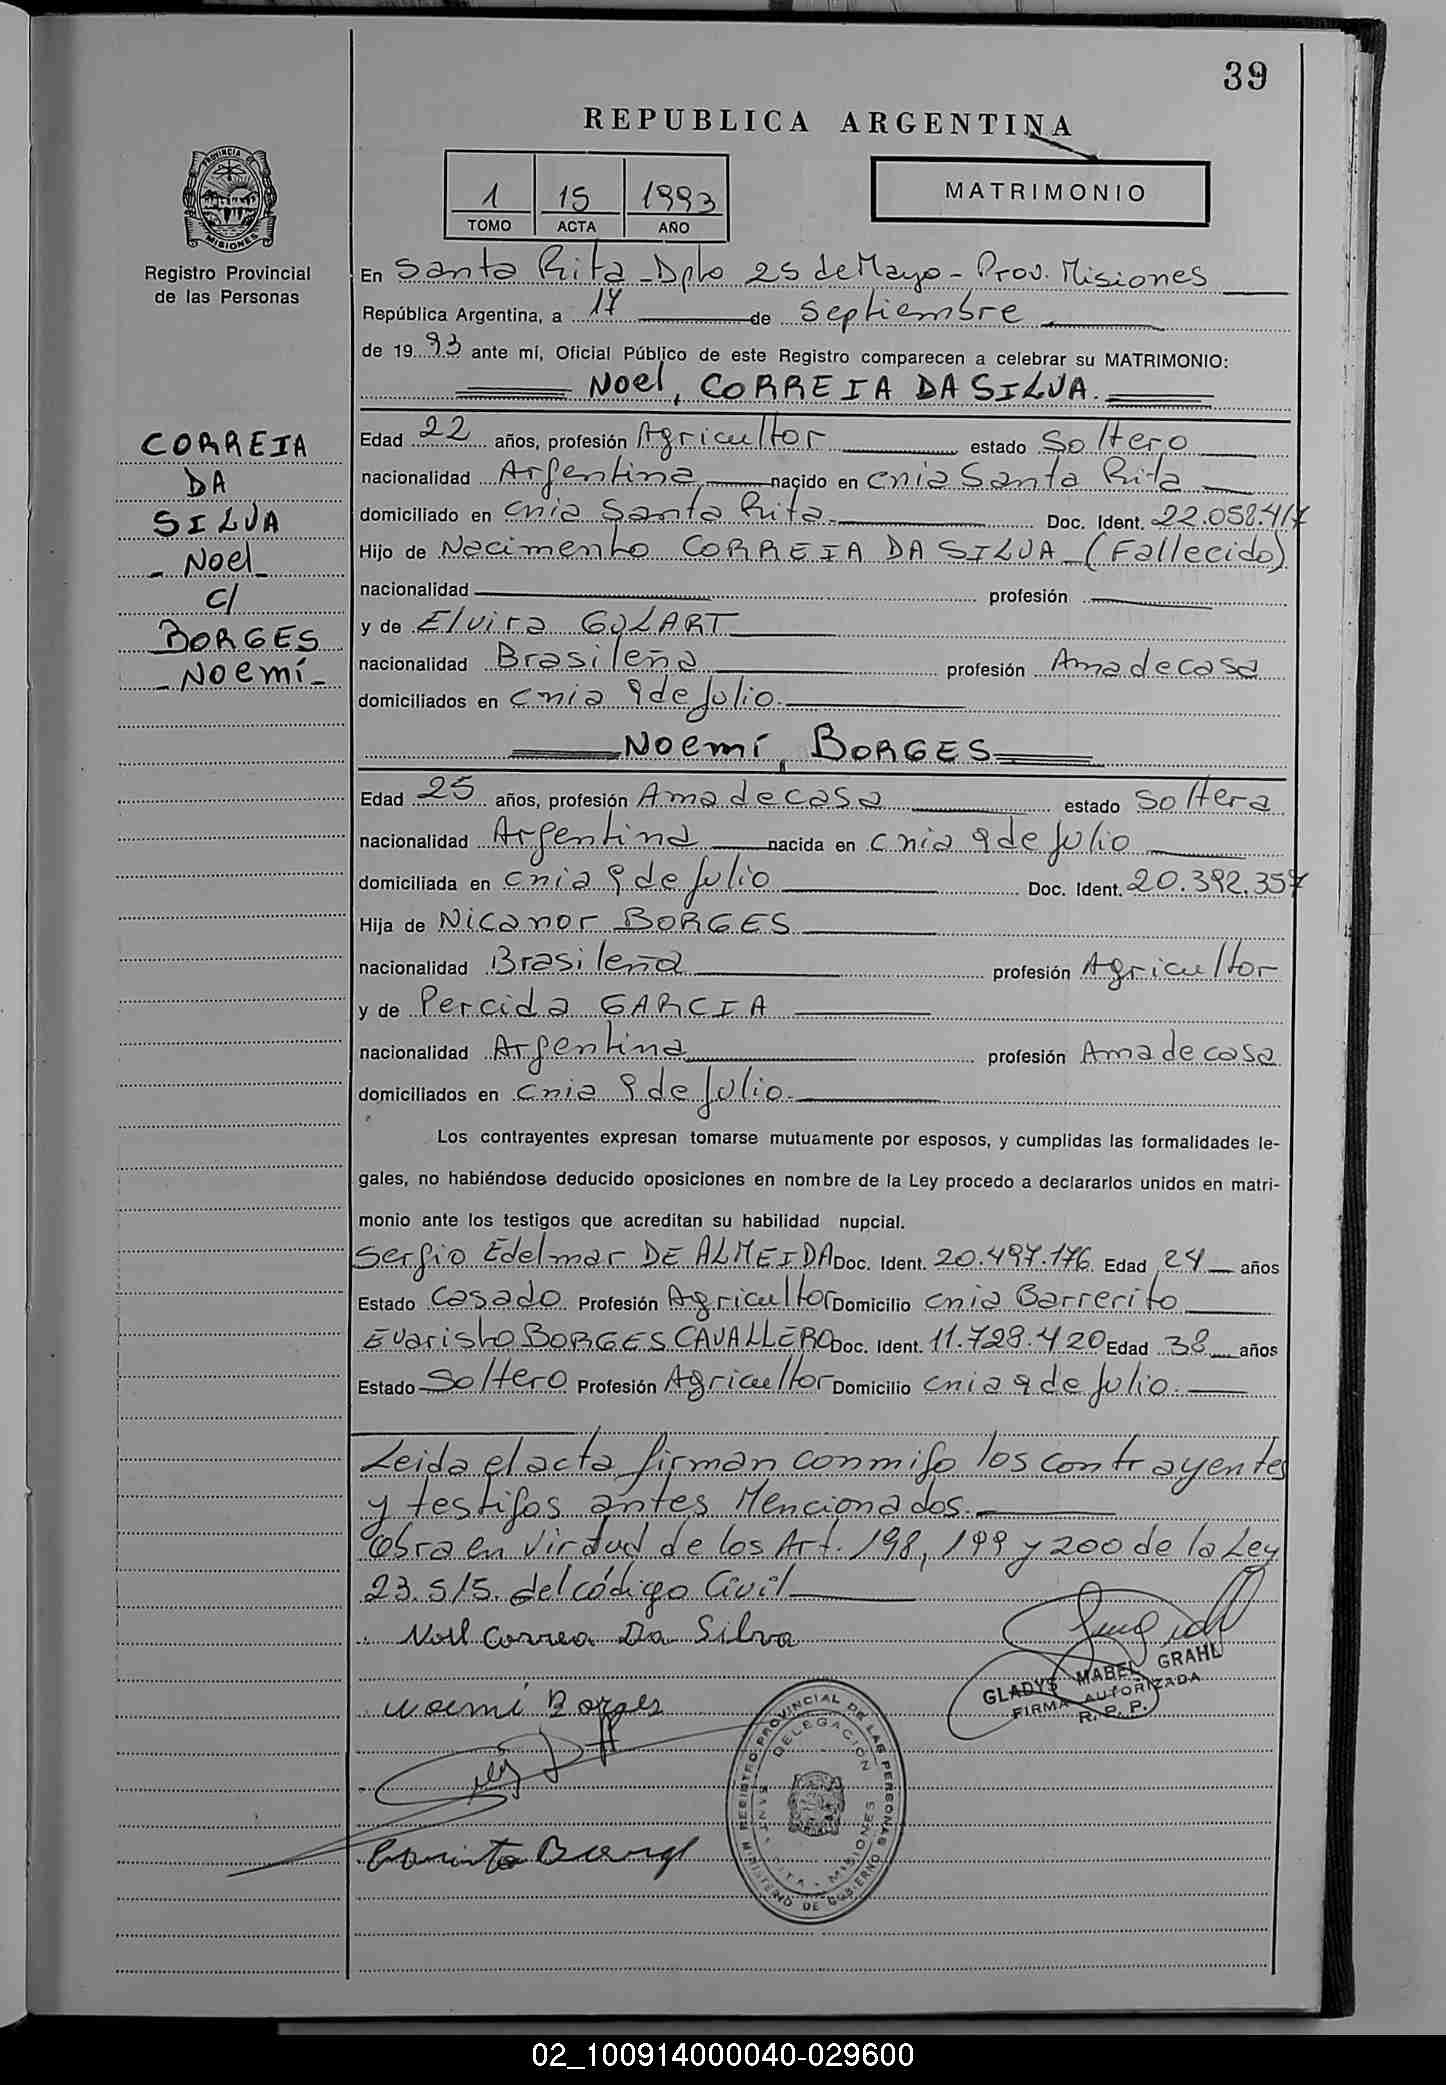 39
REPUBLICA ARGENTINA
PROVINCIA DE MISIONES
Registro Provincial
de las Personas
1 15 1993
TOMO ACTA AÑO
MATRIMONIO
En Santa Rita - Dpto 25 de Mayo - Prov. Misiones
República Argentina, a 17 de Septiembre
de 1993 ante mí, Oficial Público de este Registro comparecen a celebrar su MATRIMONIO:
Noel, CORREIA DA SILVA.
CORREIA
DA
SILVA
- Noel -
c/
BORGES
- Noemí -
Edad 22 años, profesión Agricultor estado Soltero
nacionalidad Argentina nacido en cnia Santa Rita
domiciliado en cnia Santa Rita. Doc. Ident. 22.058.417
Hijo de Nacimento CORREIA DA SILVA - (Fallecido)
nacionalidad profesión
y de Elvira GULART
nacionalidad Brasileña profesión Ama de casa
domiciliados en cnia 9 de Julio.
Noemí, BORGES
Edad 25 años, profesión Ama de casa estado Soltera
nacionalidad Argentina nacida en cnia 9 de Julio
domiciliada en cnia 9 de Julio Doc. Ident. 20.392.357
Hija de Nicanor BORGES
nacionalidad Brasileña profesión Agricultor
y de Percida GARCIA
nacionalidad Argentina profesión Ama de casa
domiciliados en cnia 9 de Julio.
Los contrayentes expresan tomarse mutuamente por esposos, y cumplidas las formalidades le-
gales, no habiéndose deducido oposiciones en nombre de la Ley procedo a declararlos unidos en matri-
monio ante los testigos que acreditan su habilidad nupcial.
Sergio Edelmar DE ALMEIDA Doc. Ident. 20.497.176 Edad 24 años
Estado Casado Profesión Agricultor Domicilio cnia Barrerito
Evaristo BORGES CAVALLERO Doc. Ident. 11.728.420 Edad 38 años
Estado Soltero Profesión Agricultor Domicilio cnia 9 de Julio.
Leida el acta firman conmigo los contrayentes
y testigos antes Mencionados.
Obra en virtud de los Art. 198, 199 y 200 de la Ley
23.515. del código Civil
Noel Correa Da Silva
GLADYS MABEL GRAHL
FIRMA AUTORIZADA
R. P. P.
Noemí Borges
REGISTRO PROVINCIAL DE LAS PERSONAS
DELEGACIÓN
SANTA RITA - MISIONES
MINISTERIO DE GOBIERNO
02_100914000040-029600